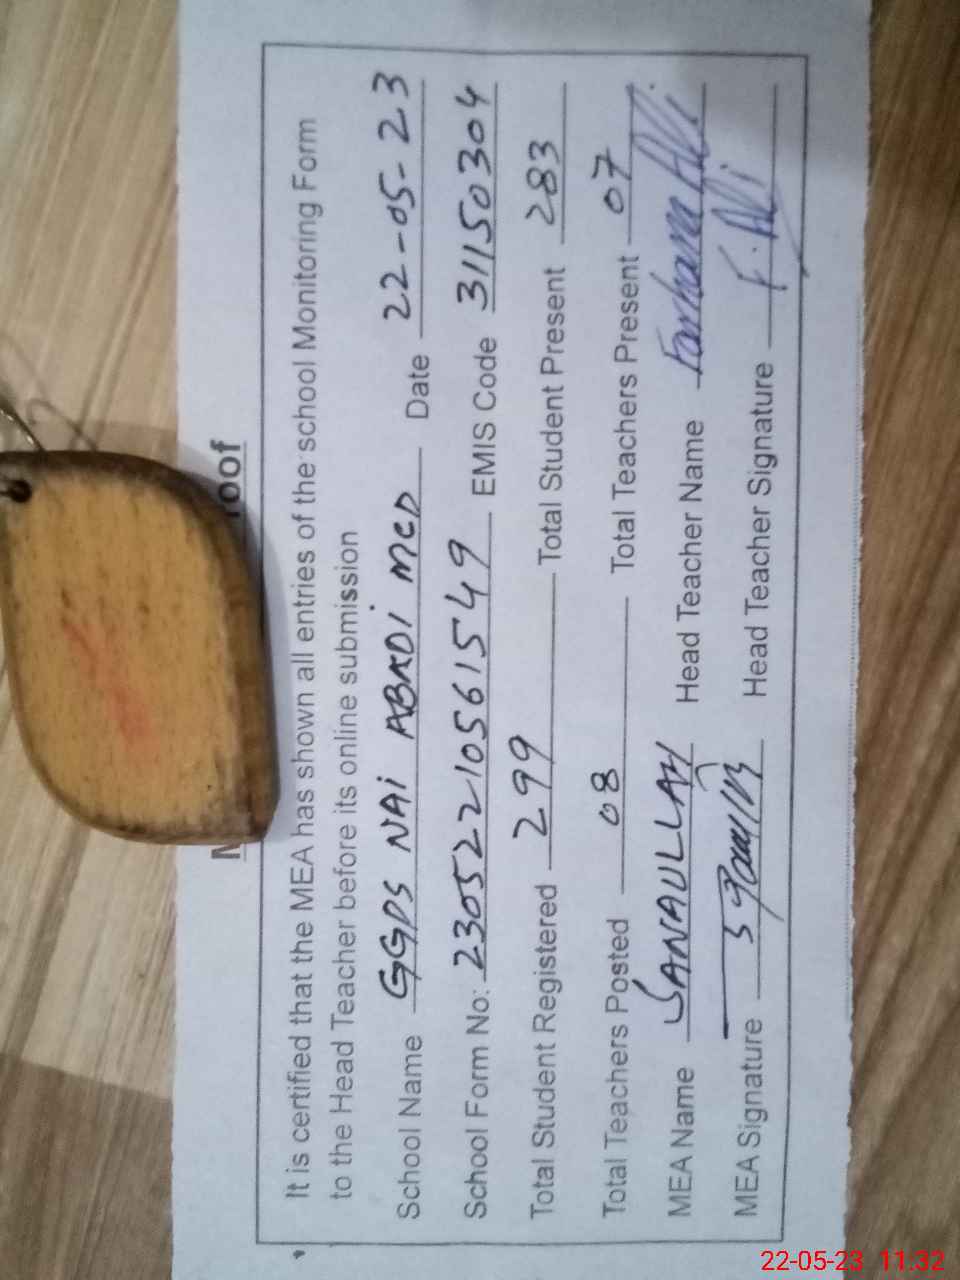 It is certified that the MEA has shown all entries of the school Monitoring Form
to the Head Teacher before its online submission
School Name GGPS NAI ABADI MCD Date 22-05-23
School Form No: 23052210561549 EMIS Code 31150304
Total Student Registered 299 Total Student Present 283
Total Teachers Posted 08 Total Teachers Present 07
MEA Name SANAULLAH Head Teacher Name Farhana Ali
MEA Signature Head Teacher Signature F. Ali
22-05-23 11:32